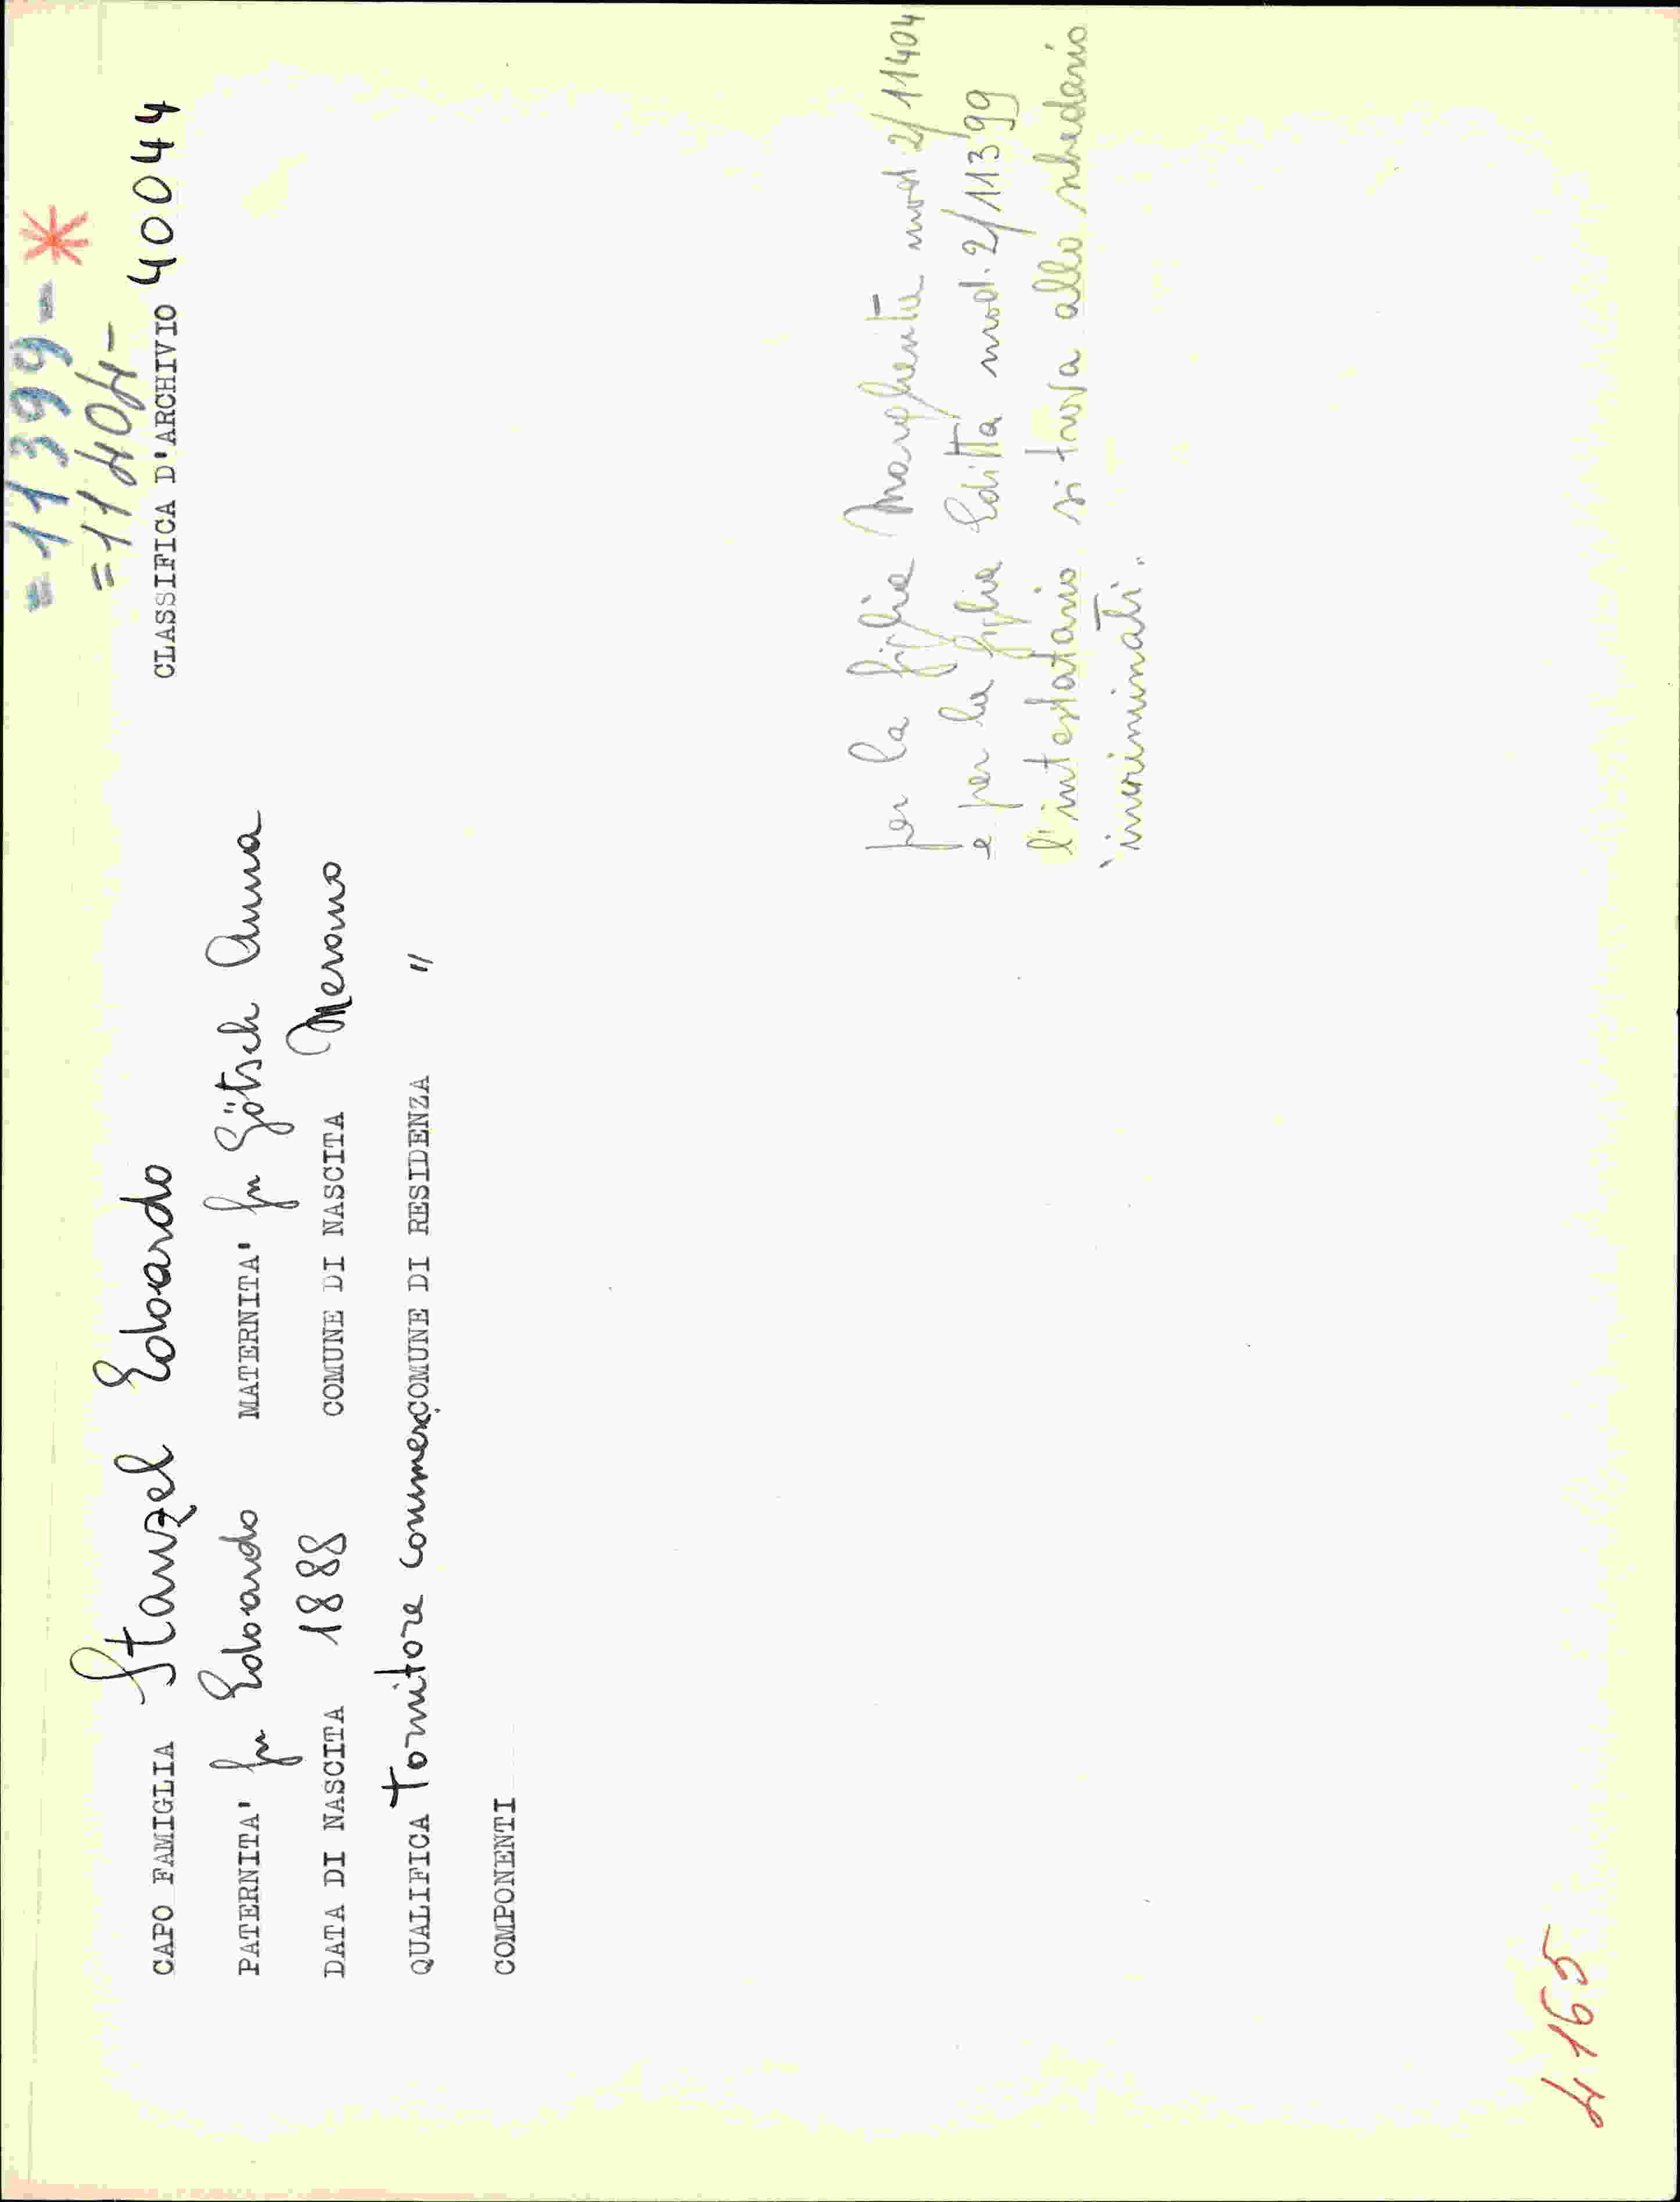 = 11399 - *
= 11404 -
CLASSIFICA D'ARCHIVIO 40044
CAPO FAMIGLIA Stanzel Edoardo
PATERNITA' fu Edoardo MATERNITA' fu Götsch Anna
DATA DI NASCITA 1888 COMUNE DI NASCITA Merano
QUALIFICA Tornitore commerc. COMUNE DI RESIDENZA "
COMPONENTI
per la figlia Margherita mod. 2/11404
e per la figlia Editta mod. 2/11399
l'intestatario si trova allo schedario
"incriminati"
4165